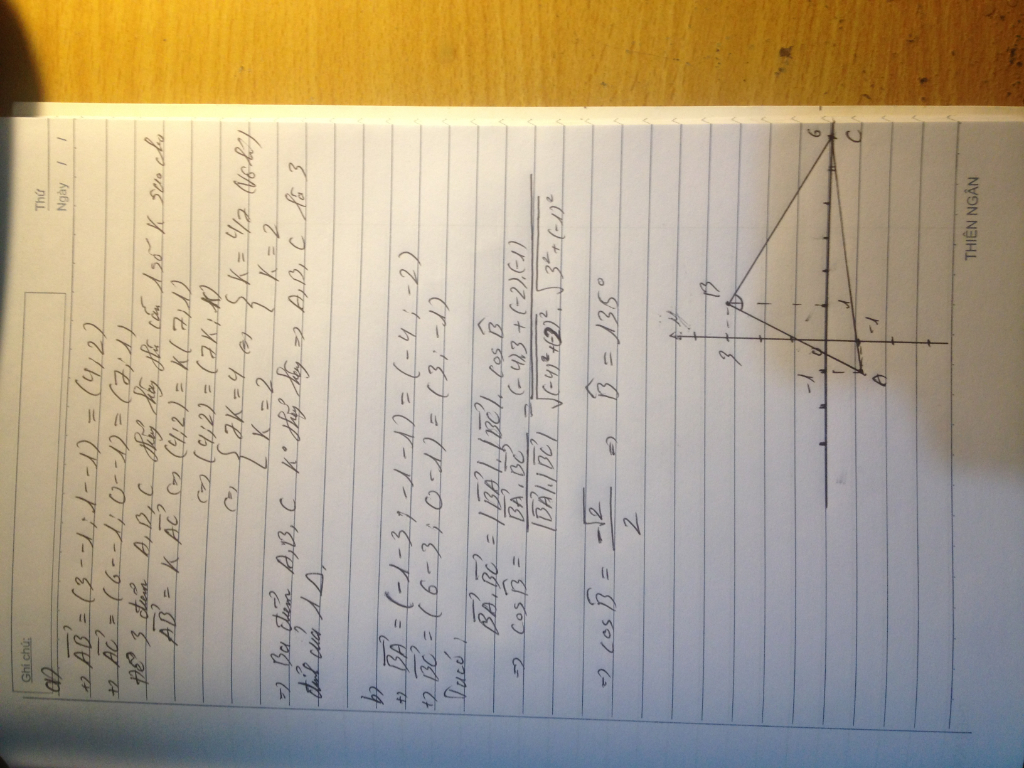 Ghi chú:
Thứ
Ngày / /
a)
+) AB→ = (3 - -1 ; 1 - -1) = (4; 2)
+) AC→ = (6 - -1 ; 0 - -1) = (7; 1)
Để 3 điểm A, B, C thẳng hàng thì cần 1 số K sao cho
AB→ = K AC→ ⇔ (4; 2) = K (7; 1)
⇔ (4; 2) = (7K; 1K)
⇔ { 7K = 4 ⇔ { K = 4/7 (Vô lí)
K = 2 K = 2
⇒ Ba điểm A, B, C K° thẳng hàng ⇒ A, B, C là 3
đỉnh của 1 Δ.
b)
+) BA→ = (-1 - 3 ; -1 - 1) = (-4 ; -2)
+) BC→ = (6 - 3 ; 0 - 1) = (3 ; -1)
Ta có:
BA→. BC→ = |BA→|. |BC→|. cos B̂
⇒ cos B̂ = BA→. BC→ / |BA→|.|BC→| = (-4).3 + (-2).(-1) / √(-4)² + (-2)² . √3² + (-1)²
⇒ cos B̂ = -√2 / 2 ⇒ B̂ = 135°
y
3
B
6
C
-1
1
-1
A
THIÊN NGÂN